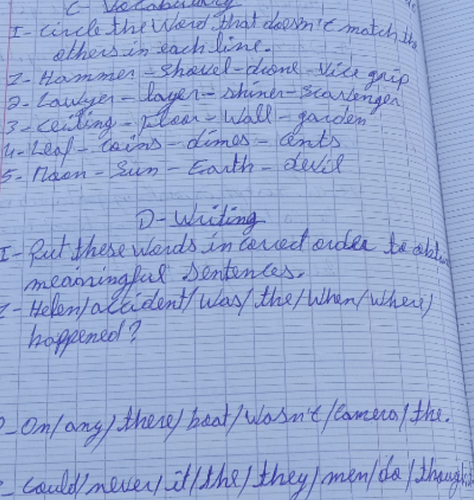 C- Vocabulary
I- Circle the word that doesn't match the
others in each line.
1- Hammer - Shovel - drone - Vice grip
2- Lawyer - layer - shiner - Scavenger
3- Ceiling - Floor - Wall - garden
4- Leaf - coins - dimes - cents
5- Moon - Sun - Earth - devil
D- Writing
I- Put these words in correct order to obtain
meaningful sentences.
1- Helen/accident/was/the/When/where/
happened?
On/any/there/boat/wasn't/camera/the.
could/never/it/the/they/men/do/thought